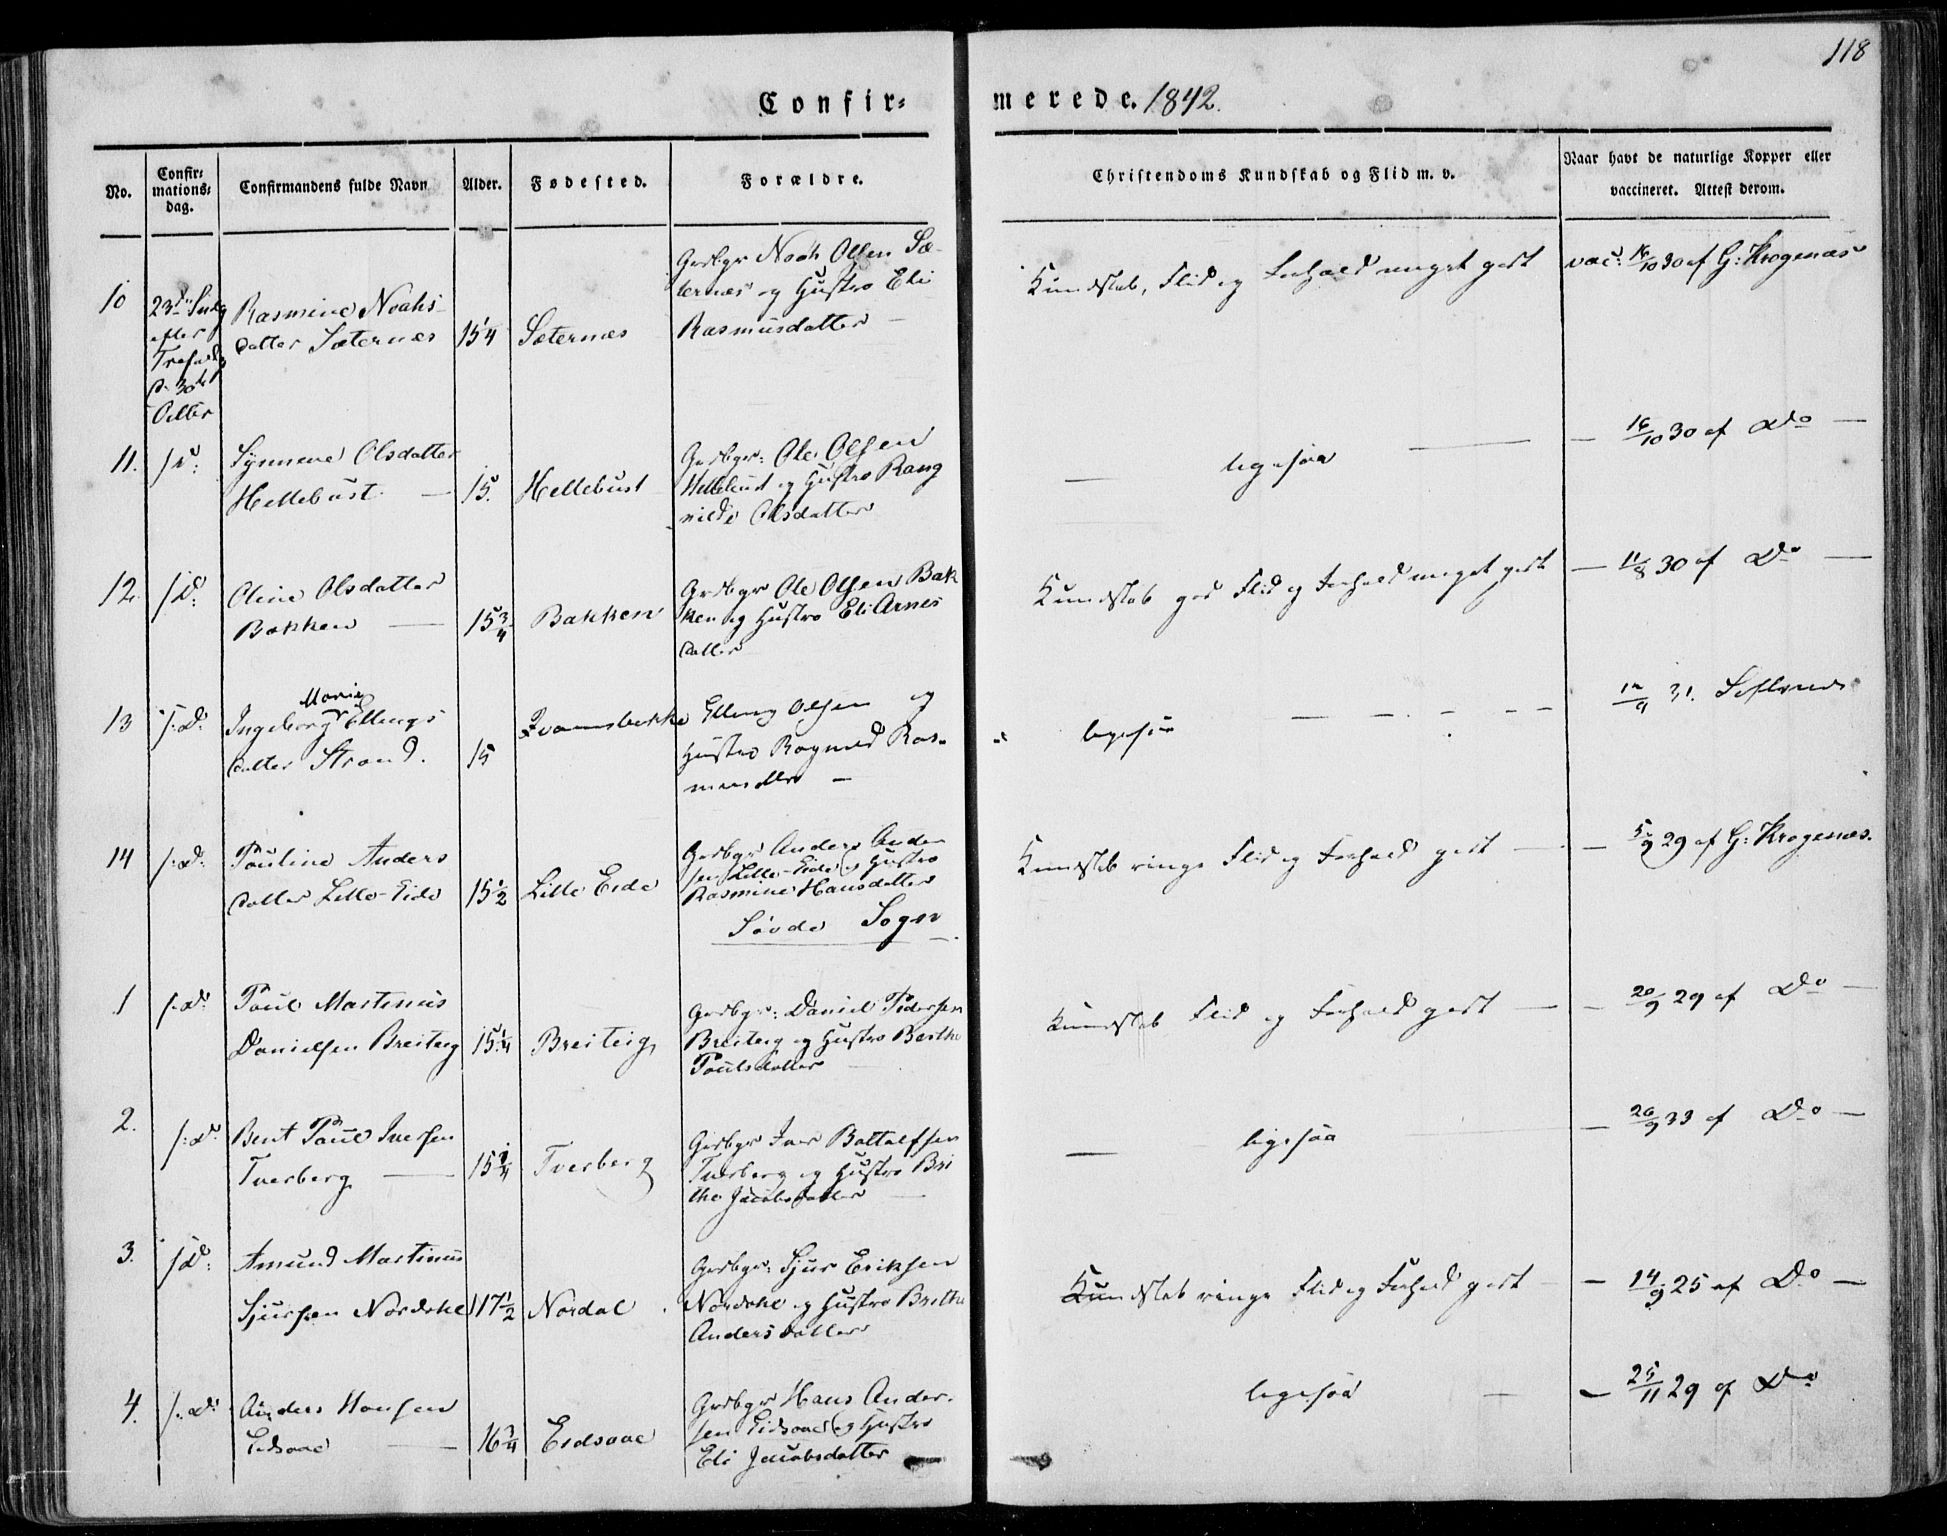 118
Confir=
merede. 1842.
No.
Confir=
mations=
dag.
Confirmandens fulde Navn
Alder.
Fødested.
Forældre.
Christendoms Kundskab og Flid m. v.
Naar havt de naturlige Kopper eller
vaccineret. Attest derom.
10
23d Sndg
efter
Trefold
d. 30te
Octbr
Rasmine Noahs-
datter Sæternæs
15 1/4
Sæternæs
Grdbgr Noah Olsen Sæ-
ternæs og Hustro Eli
Rasmusdatter —
Kundskab, Flid og Forhold meget godt
vac: 16/10 30 af G: Krogenæs
11.
s. D:
Synneve Olsdatter
Hellebust —
15.
Hellebust
Grdbgr: Ole Olsen
Hellebust og Hustro Rang
nilde Olsdatter
— ligesaa —
— 16/10 30 af Do —
12.
s. D:
Oline Olsdatter
Bakken —
15 3/4
Bakken
Grdbgr Ole Olsen Bak
ken og Hustro Eli Arnes
datter
Kundskab god Flid og Forhold meget godt
— 11/8 30 af Do —
13
s. D:
Marie
Ingeborg Ellings
datter Strand.
15
Elling Olsen og
Hustro Ragnild Ras-
musdtr —
ligesaa — — . — — —
14
s. D:
Pauline Anders
datter Lille-Eide
15 1/2
Lille Eide
Grdbgr Anders Ander
sen Lille-Eide og Hustro
Rasmine Hansdatter
Søvde Sogn
Kundskab ringe Flid og Forhold godt —
— 5/9 29 af G: Krogenæs.
1
s. D:
Paul Martinus
Danielsen Breiteig
15 1/4
Breiteig
Grdbgr: Daniel Pedersen
Breiteig og Hustro Berthe
Paulsdatter
Kundskab Flid og Forhold godt —
— 20/9 29 af Do —
2.
s. D:
Bent Paul Iversen
Tverberg —
15 1/4
Tverberg
Grdbgr Iver Bottolfsen
Tverberg og Hustro Bri
the Jacobsdatter —
— ligesaa
— 26/9 33 af Do —
3.
s. D:
Amund Martinus
Sjursen Nordahl
17 1/2
Nordal .
Grdbgr: Sjur Eriksen
Nordahl og Hustro Brithe
Andersdatter
Kundskab ringe Flid og Forhold godt —
— 14/9 25 af Do —
4.
s. D:
Anders Hansen
Eidsaae —
16 3/4
Eidsaae
Grdbgr Hans Ander-
sen Eidsaae og Hustro
Eli Jacobsdatter
ligesaa —
— 25/11 29 af Do